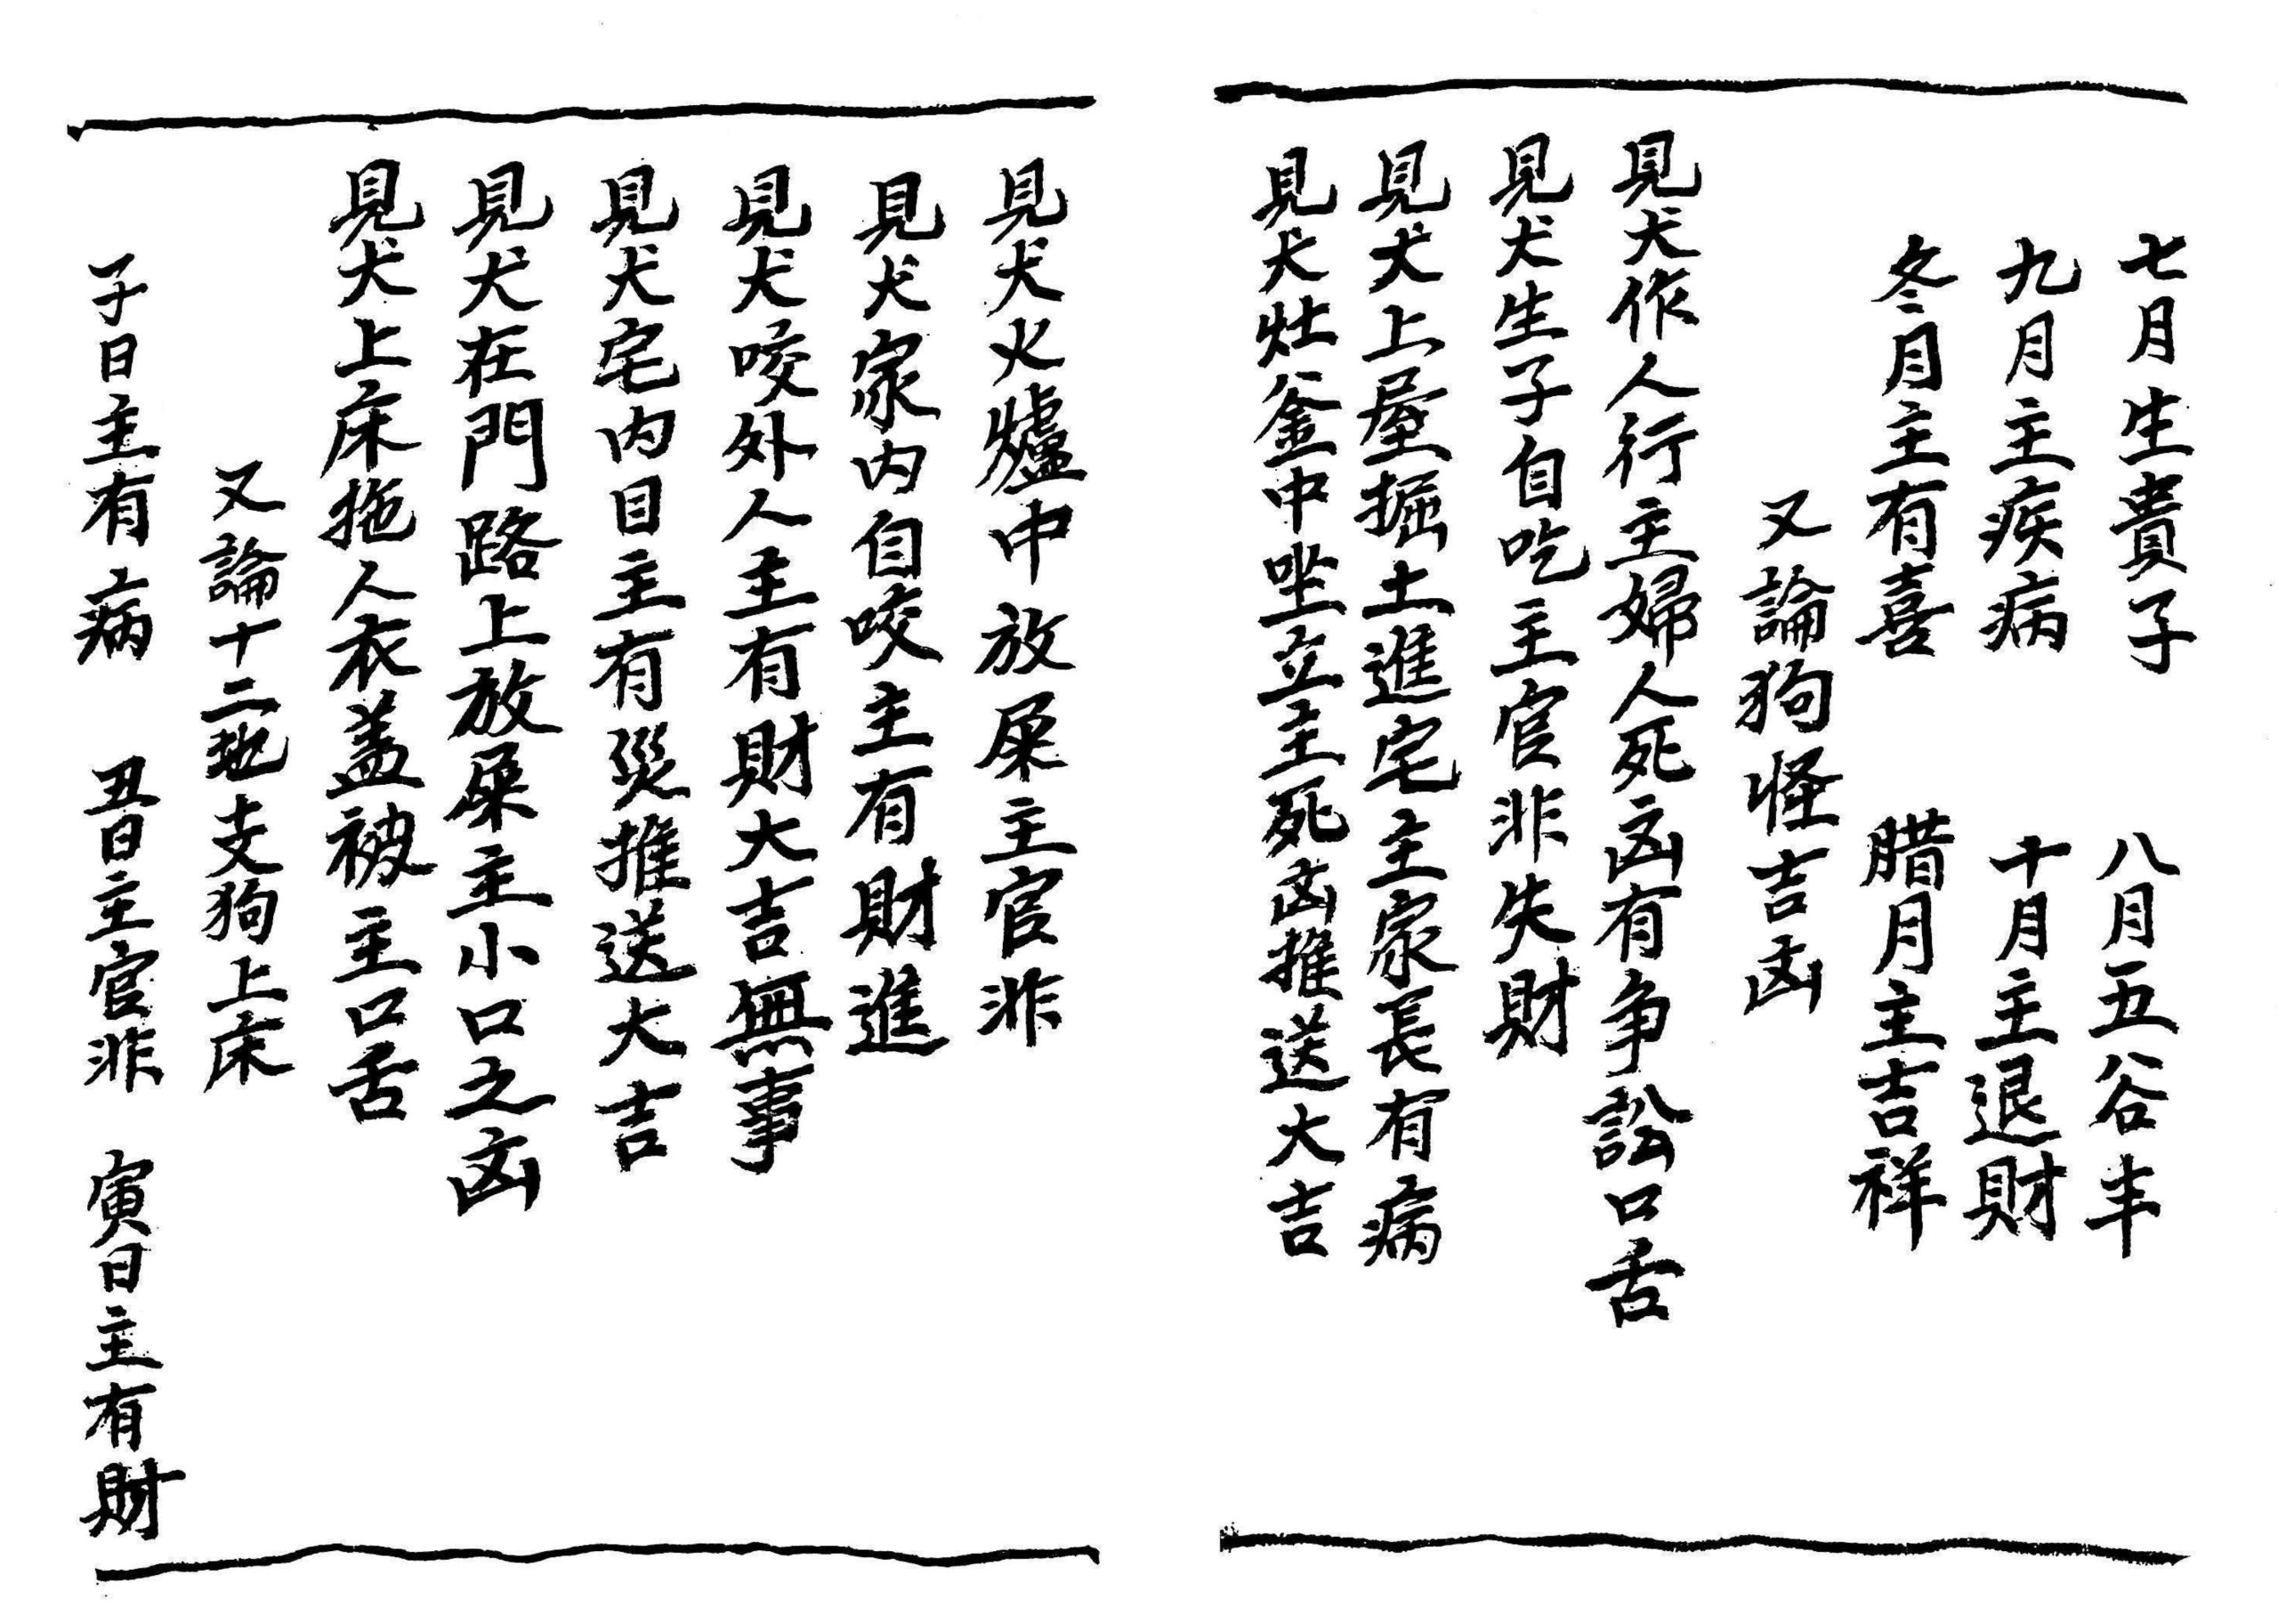 七月生貴子 八月五谷丰
九月主疾病 十月主退財
冬月主有喜 腊月主吉祥
又論狗怪吉凶
見犬作人行主婦人死凶有争訟口舌
見犬生子自吃主官非失財
見犬上屋掘土進宅主家長有病
見犬灶釜中坐立主死凶推送大吉
見犬火爐中放屎主官非
見犬家内自咬主有財進
見犬咬外人主有財大吉無事
見犬宅内目主有災推送大吉
見犬在門路上放屎主小口之凶
見犬上床拖人衣盖被主口舌
又論十二地支狗上床
子日主有病 丑日主官非 寅日主有財